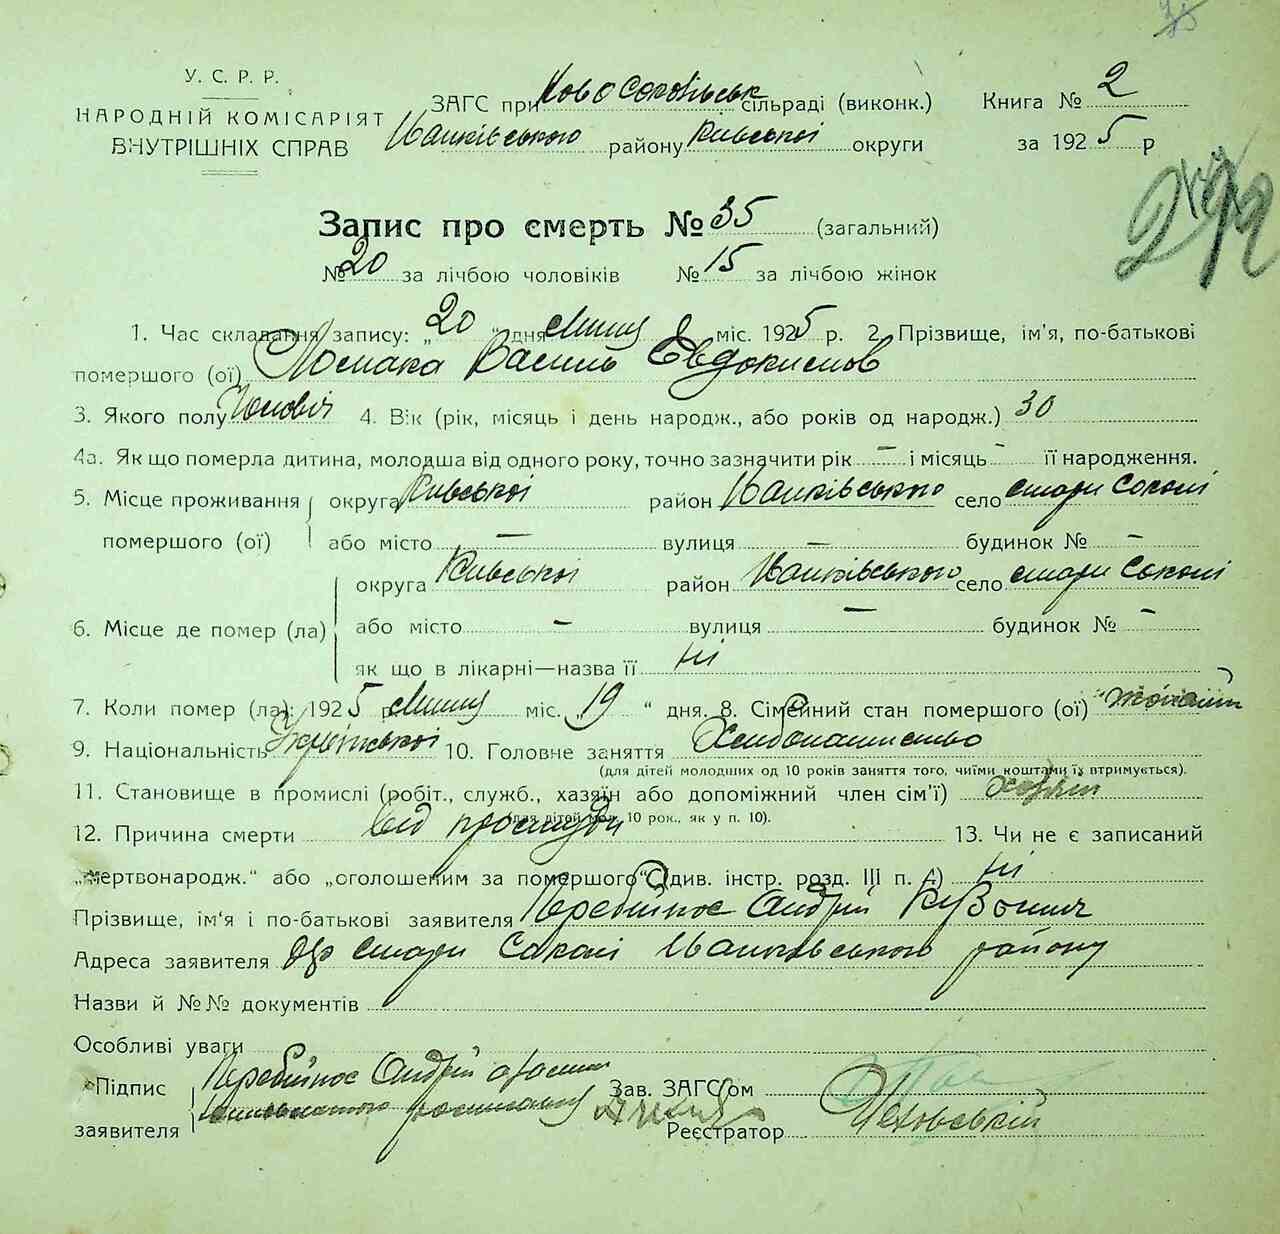 У. С. Р. Р.
НАРОДНІЙ КОМІСАРІЯТ
ВНУТРІШНІХ СПРАВ
ЗАГС при Новосокольськ сільраді (виконк.)
Іванківського району Київської округи
Книга № 2
за 1925 р
Запис про смерть № 35 (загальний)
№ 20 за лічбою чоловіків № 15 за лічбою жінок
1. Час складання запису: „20“ дня міс. 1925 р. 2. Прізвище, ім'я, по-батькові
помершого (ої) Ломака Василь Євдокимов
3. Якого полу Чоловіч 4. Вік (рік, місяць і день народж., або років од народж.) 30
4а. Як що померла дитина, молодша від одного року, точно зазначити рік — і місяць - її народження.
5. Місце проживання помершого (ої) округа Київської район Іванківського село стари Соколі
або місто — вулиця — будинок № —
6. Місце де помер (ла) округа Київської район Іванківського село стари Соколі
або місто — вулиця — будинок № —
як що в лікарні—назва її ні
7. Коли помер (ла): 1925 р міс. „19“ дня. 8. Сімейний стан помершого (ої)
9. Національність 10. Головне заняття Хлибопашество
(для дітей молодших од 10 років заняття того, чиїми коштами їх втримується).
11. Становище в промислі (робіт., служб., хазяїн або допоміжний член сім'ї) хозяін
(для дітей мол. 10 рок., як у п. 10).
12. Причина смерти від простуди 13. Чи не є записаний
„мертвонародж.“ або „оголошеним за помершого“ (див. інстр. розд. III п. 4) ні
Прізвище, ім'я і по-батькові заявителя Перебийнос Андрій
Адреса заявителя стари Соколі Іванківського району
Назви й №№ документів
Особливі уваги
Підпис заявителя Перебийнос Андрій
Зав. ЗАГС'ом
Реєстратор